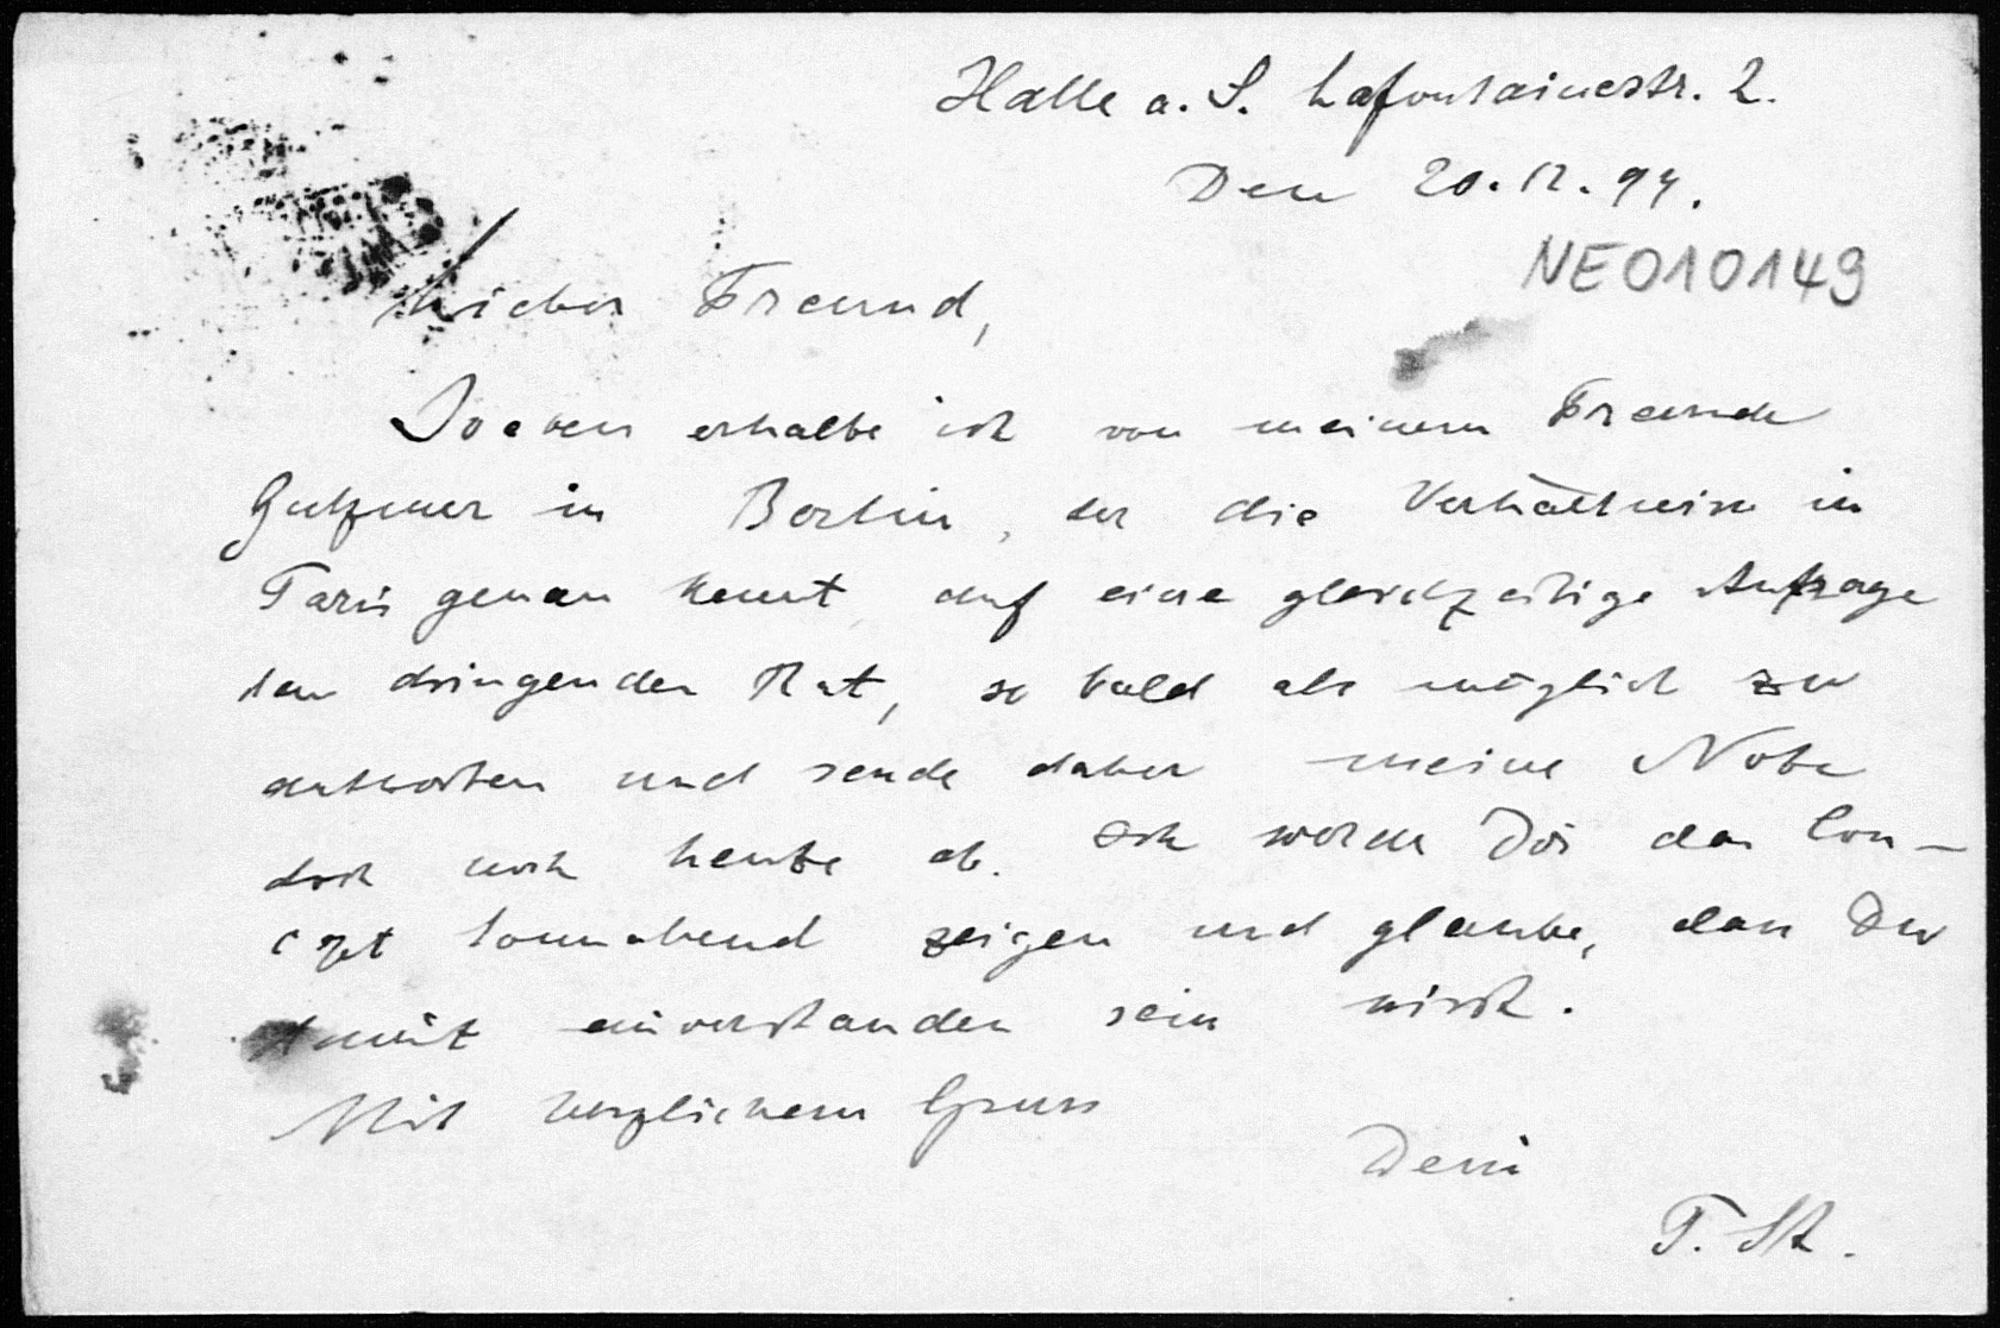 Halle a. S. Lafontainestr. 2.
Den 20. 12. 94.
NE010149
Lieber Freund,
Soeben erhalte ich von meinem Freunde
Gutzmer in Berlin, der die Verhältnisse in
Paris genau kennt, auf eine gleichzeitige Anfrage
den dringenden Rat, so bald als möglich zu
antworten und sende daher meine Note
doch noch heute ab. Ich werde Dir das Con-
cept Sonnabend zeigen und glaube, dass Du
damit einverstanden sein wirst.
Mit herzlichem Gruss
Dein
P. St.